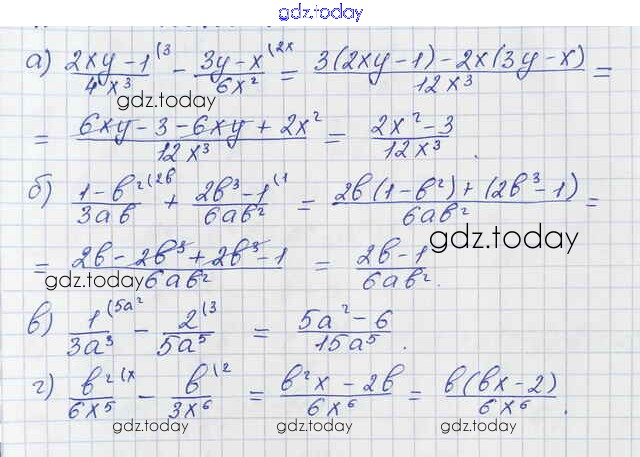 gdz.today
а) (2xy - 1)/(4x³) (3 - (3y - x)/(6x²) (2x = (3(2xy - 1) - 2x(3y - x))/(12x³) =
gdz.today
= (6xy - 3 - 6xy + 2x²)/(12x³) = (2x² - 3)/(12x³).
б) (1 - b²)/(3ab) (2b + (2b³ - 1)/(6ab²) (1 = (2b(1 - b²) + (2b³ - 1))/(6ab²) =
gdz.today
= (2b - 2b³ + 2b³ - 1)/(6ab²) = (2b - 1)/(6ab²).
gdz.today
в) 1/(3a³) (5a² - 2/(5a⁵) (3 = (5a² - 6)/(15a⁵).
г) b²/(6x⁵) (x - b/(3x⁶) (2 = (b²x - 2b)/(6x⁶) = (b(bx - 2))/(6x⁶).
gdz.today gdz.today gdz.today